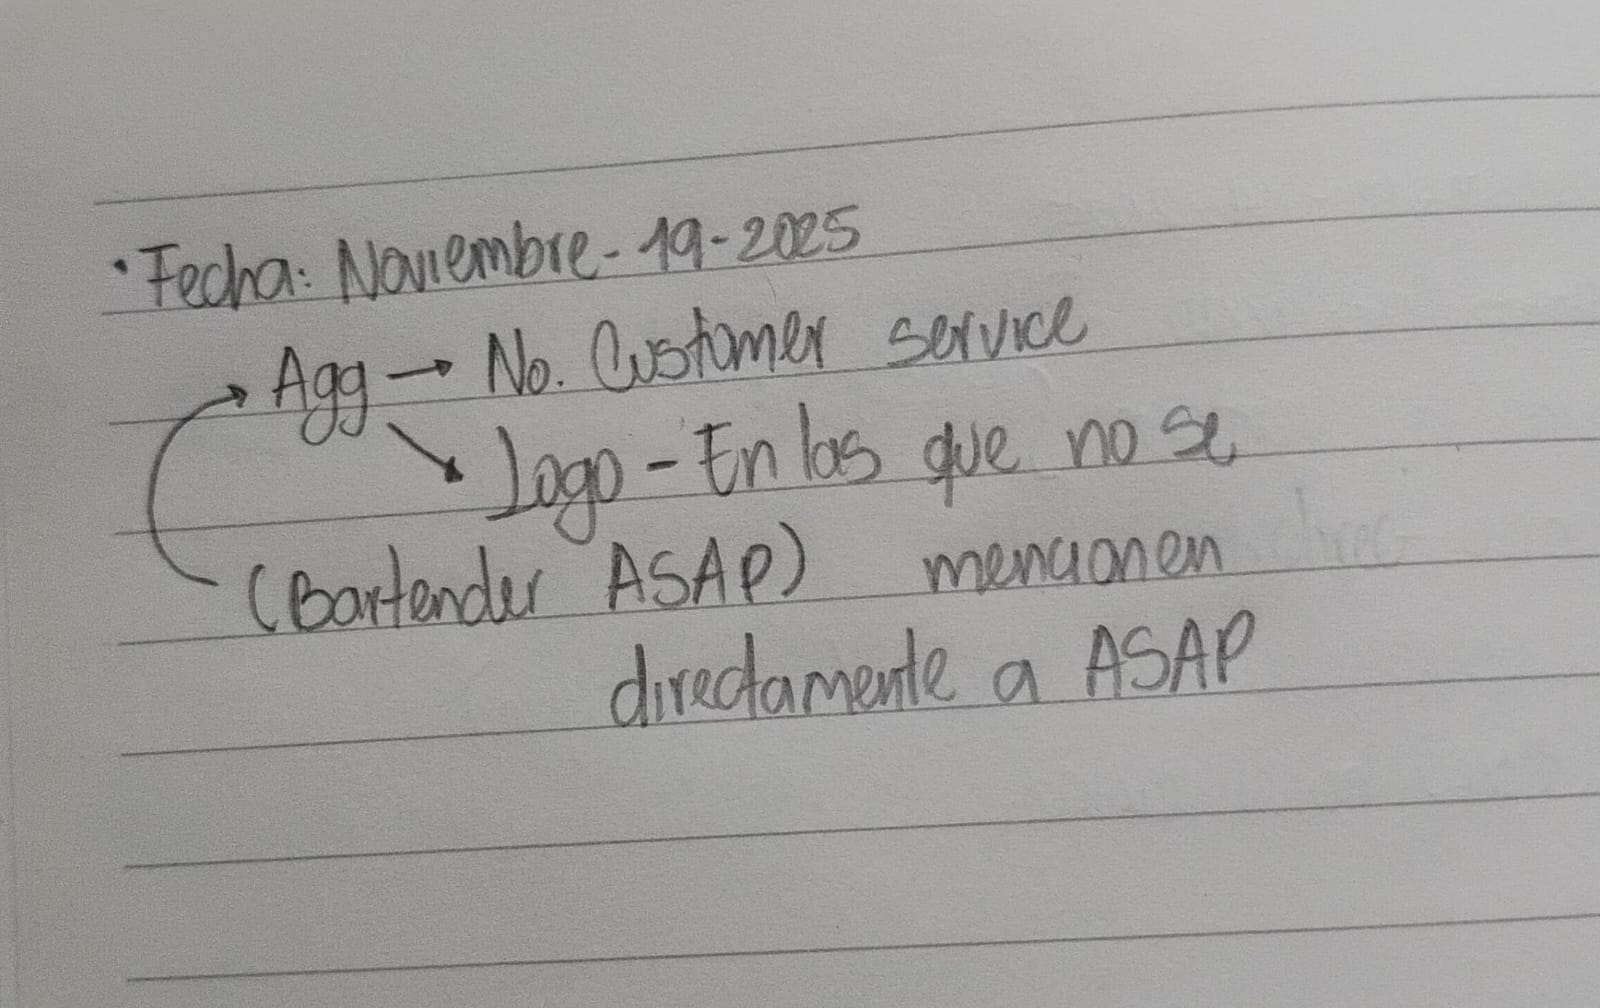 • Fecha: Noviembre - 19 - 2025
Agg → No. Customer service
Logo - En las que no se
(Bartender ASAP) mencionen
directamente a ASAP